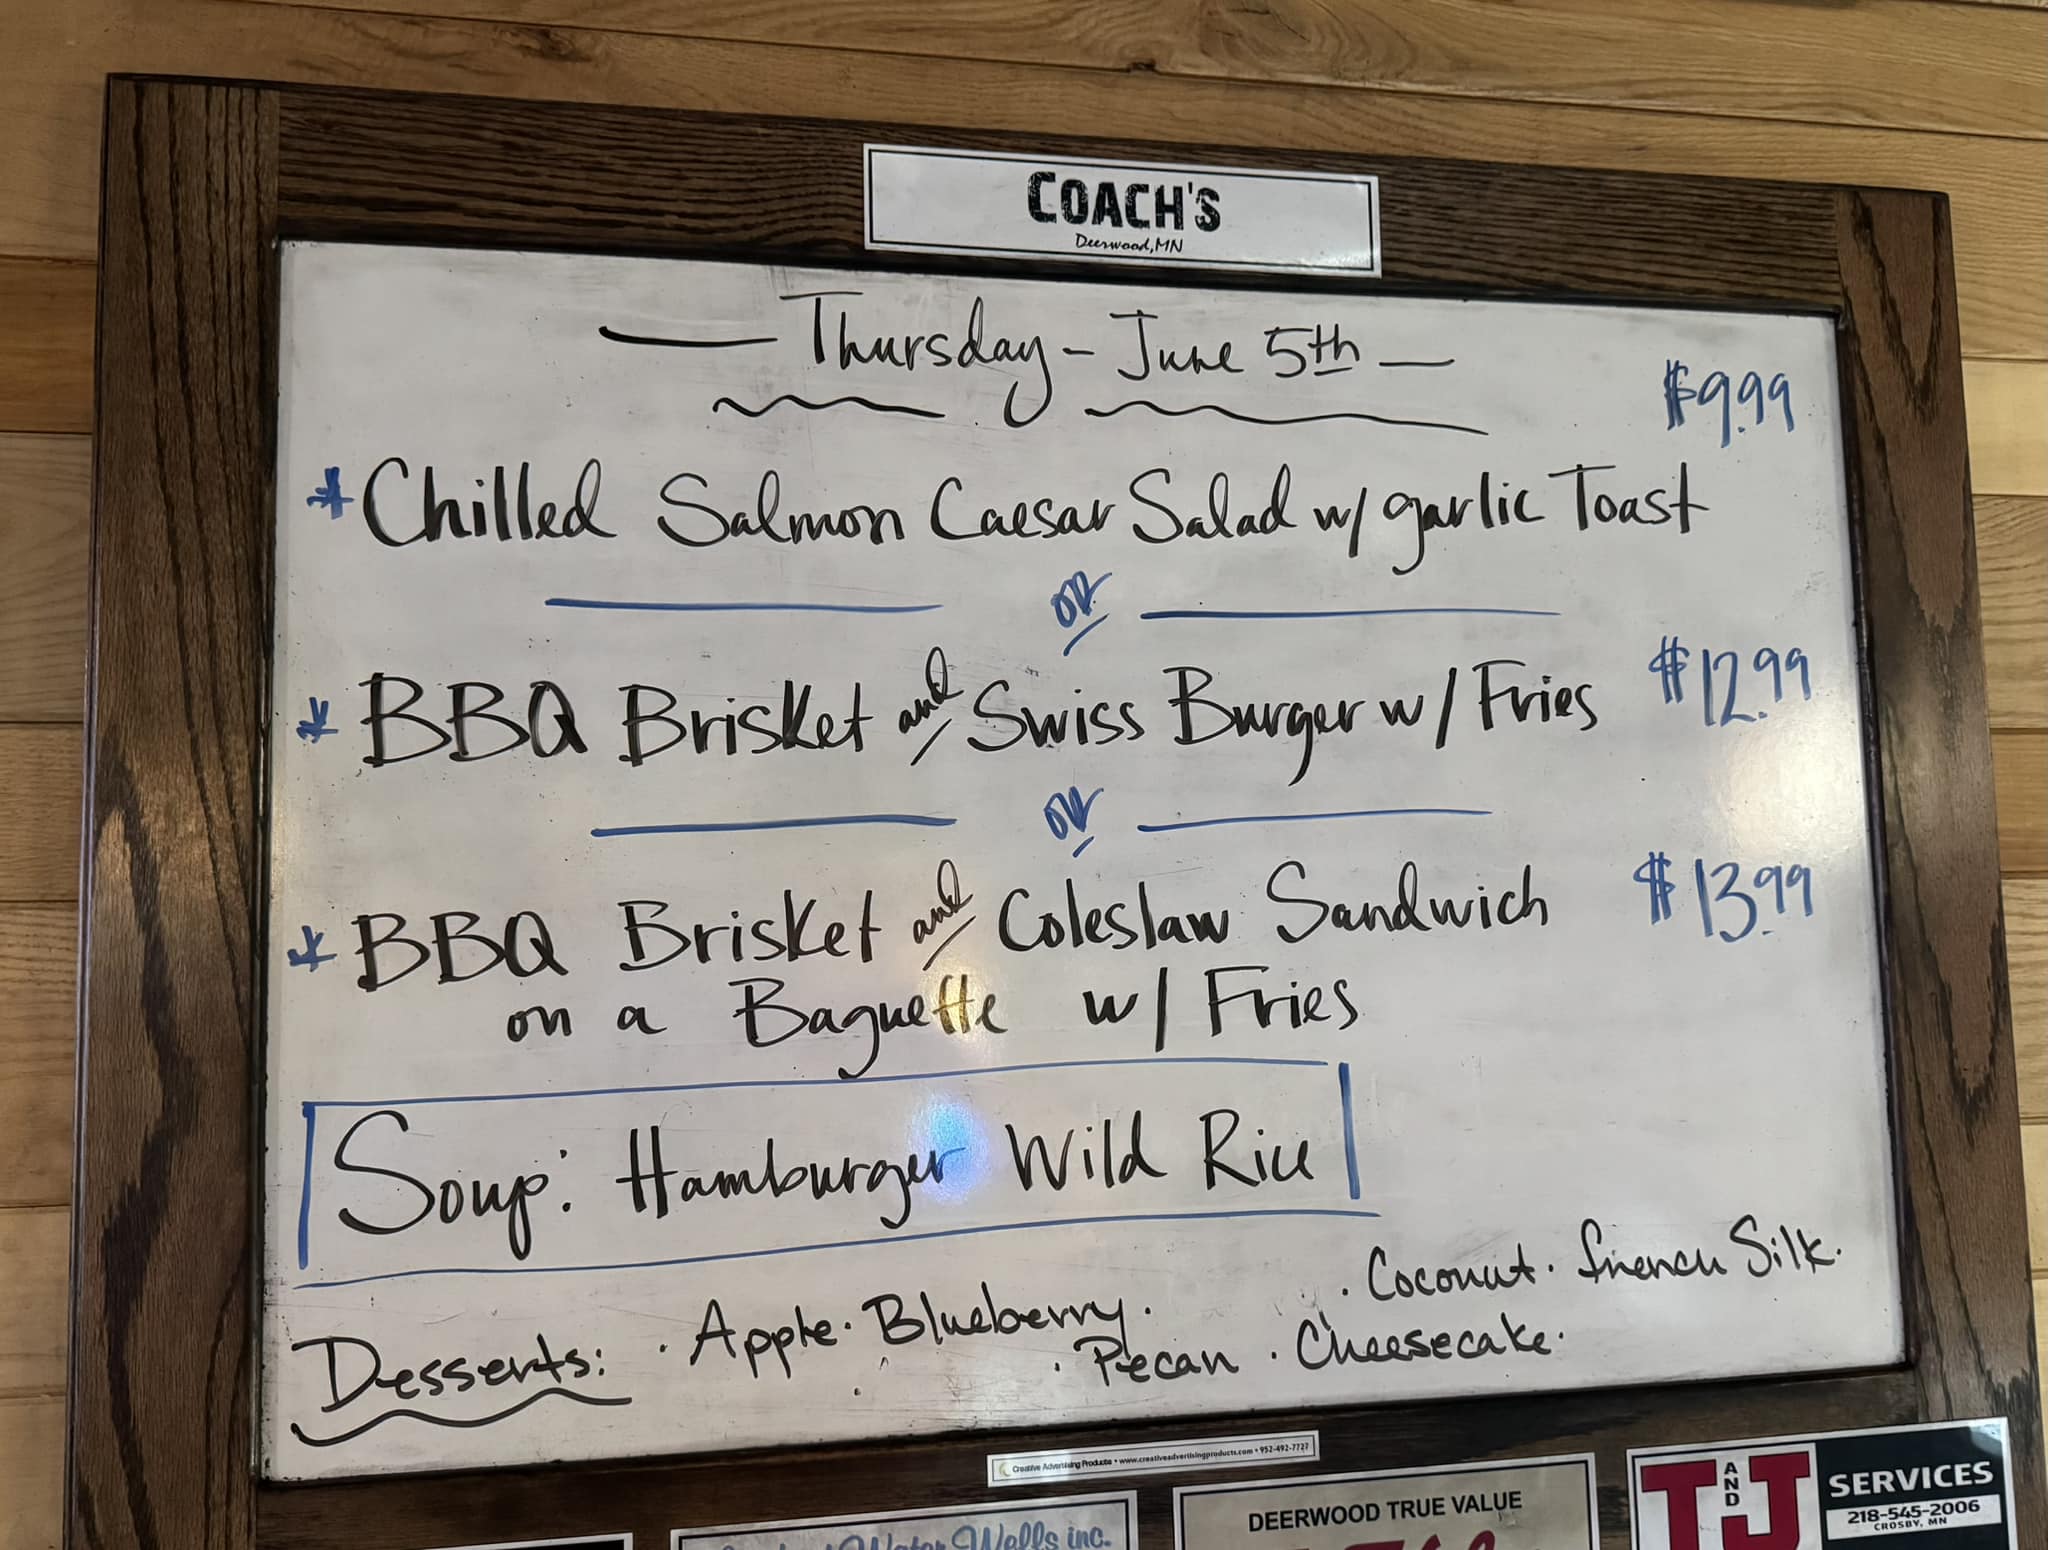 COACH'S
Deerwood, MN
Thursday - June 5th
$9.99
* Chilled Salmon Caesar Salad w/ garlic Toast
or
* BBQ Brisket and Swiss Burger w/ Fries $12.99
or
* BBQ Brisket and Coleslaw Sandwich $13.99
on a Baguette w/ Fries
Soup: Hamburger Wild Rice
Desserts: · Apple · Blueberry · · Coconut · French Silk ·
· Pecan · Cheesecake ·
Creative Advertising Products • www.creativeadvertisingproducts.com • 952-492-7727
Water Wells inc.
DEERWOOD TRUE VALUE
T AND J SERVICES
218-545-2006
CROSBY, MN